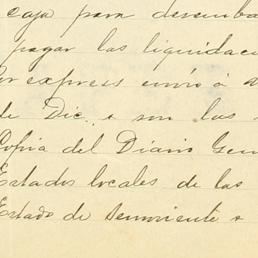 caja para desemba
pagar las liquidac
express envio á
de Dic. e son las
Copia del Diario Gen
Estados locales de las
Estado de